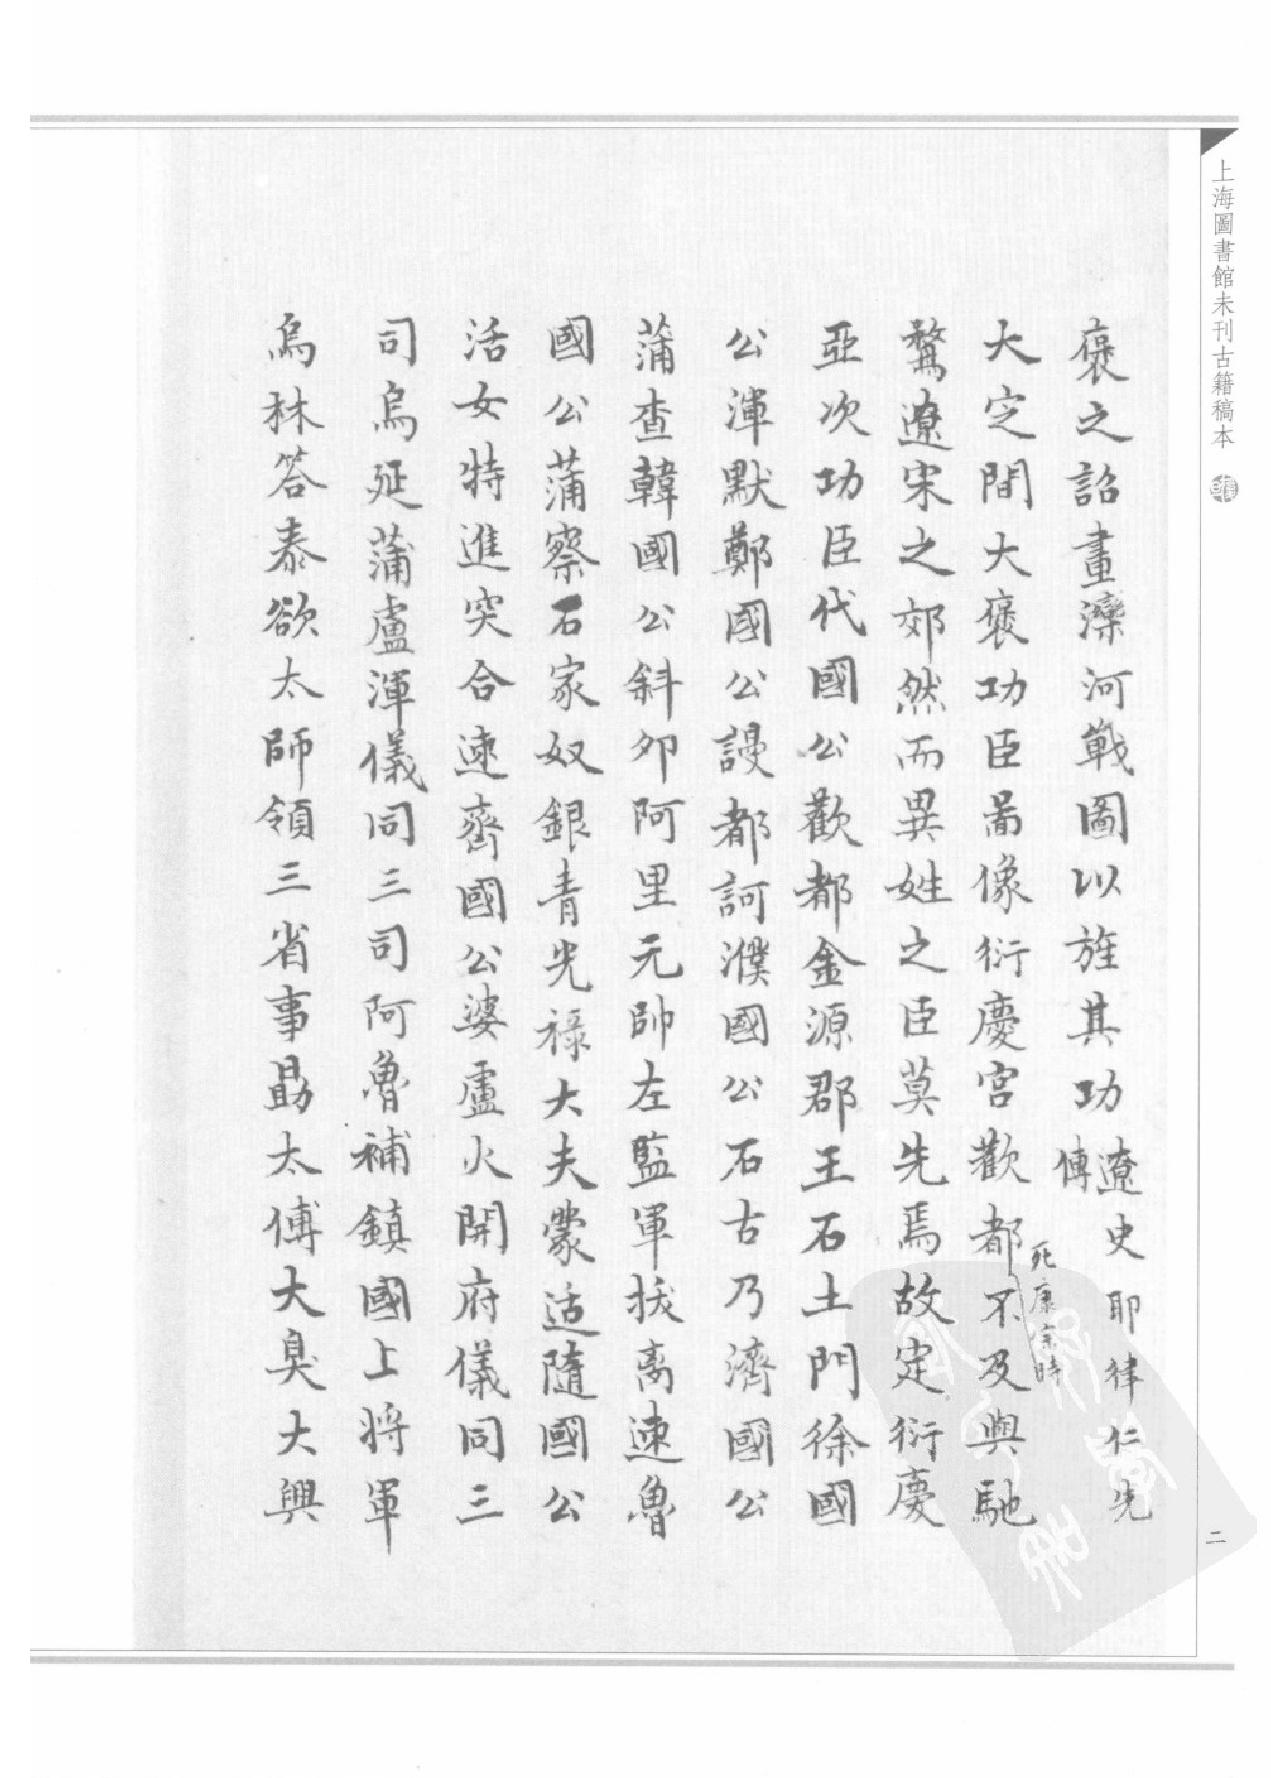 上海圖書館未刊古籍稿本
褒之詔畫灤河戰圖以旌其功遼史耶律仁先傳
大定間大褒功臣啚像衍慶宮歡都不及與馳
死康宗時
騖遼宋之郊然而異姓之臣莫先焉故定衍慶
亞次功臣代國公歡都金源郡王石土門徐國
公渾默鄭國公謾都訶濮國公石古乃濟國公
蒲查韓國公斜卯阿里元帥左監軍拔离速魯
國公蒲察石家奴銀青光祿大夫蒙适隨國公
活女特進突合速齊國公婆盧火開府儀同三
司烏延蒲盧渾儀同三司阿魯補鎮國上將軍
烏林荅泰欲太師領三省事勗太傅大㚖大興
二